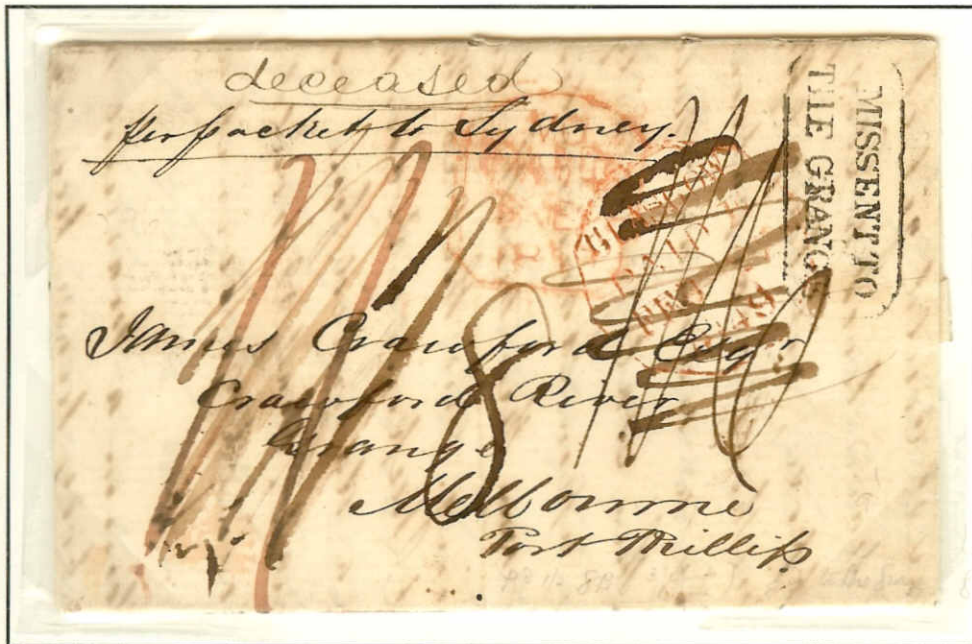 deceased
per packet to Sydney.
MISSENT TO
THE GRANGE
James Crawford Esqr
Crawford River
Grange
8
Melbourne
Port Phillip